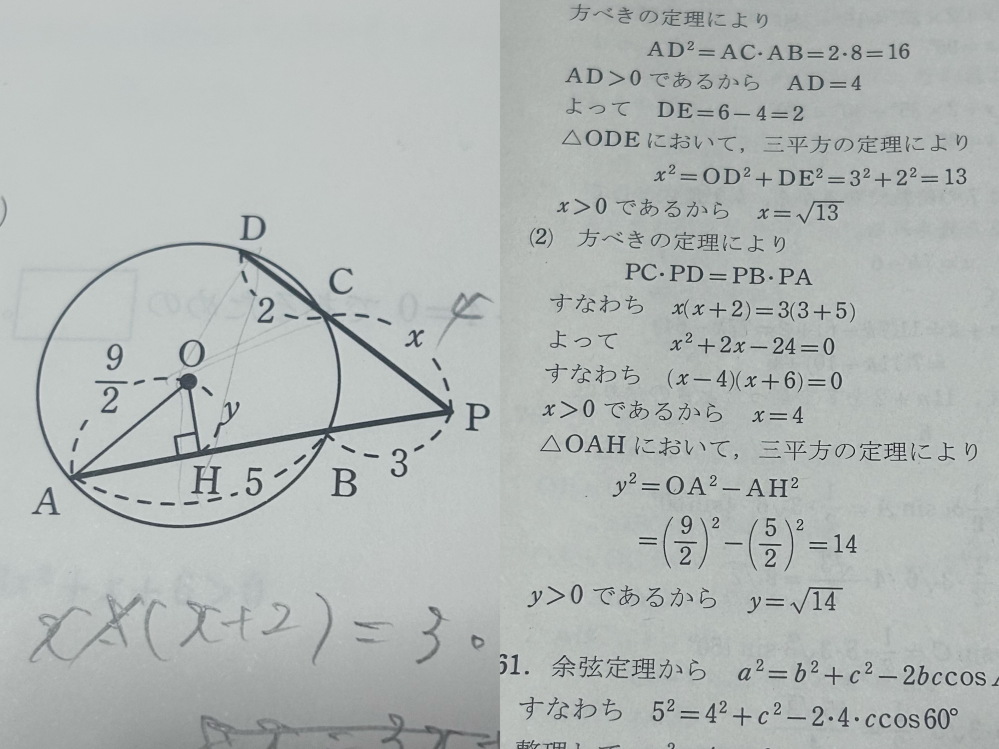 )
D
C
2
x
4
9/2
O
y
P
H
5
B
3
A
x(x+2)=3.
方べきの定理により
AD²=AC·AB=2·8=16
AD>0 であるから AD=4
よって DE=6−4=2
△ODE において，三平方の定理により
x²=OD²+DE²=3²+2²=13
x>0 であるから x=√13
(2) 方べきの定理により
PC·PD=PB·PA
すなわち x(x+2)=3(3+5)
よって x²+2x−24=0
すなわち (x−4)(x+6)=0
x>0 であるから x=4
△OAH において，三平方の定理により
y²=OA²−AH²
=(9/2)²−(5/2)²=14
y>0 であるから y=√14
61. 余弦定理から a²=b²+c²−2bccos
すなわち 5²=4²+c²−2·4·ccos60°